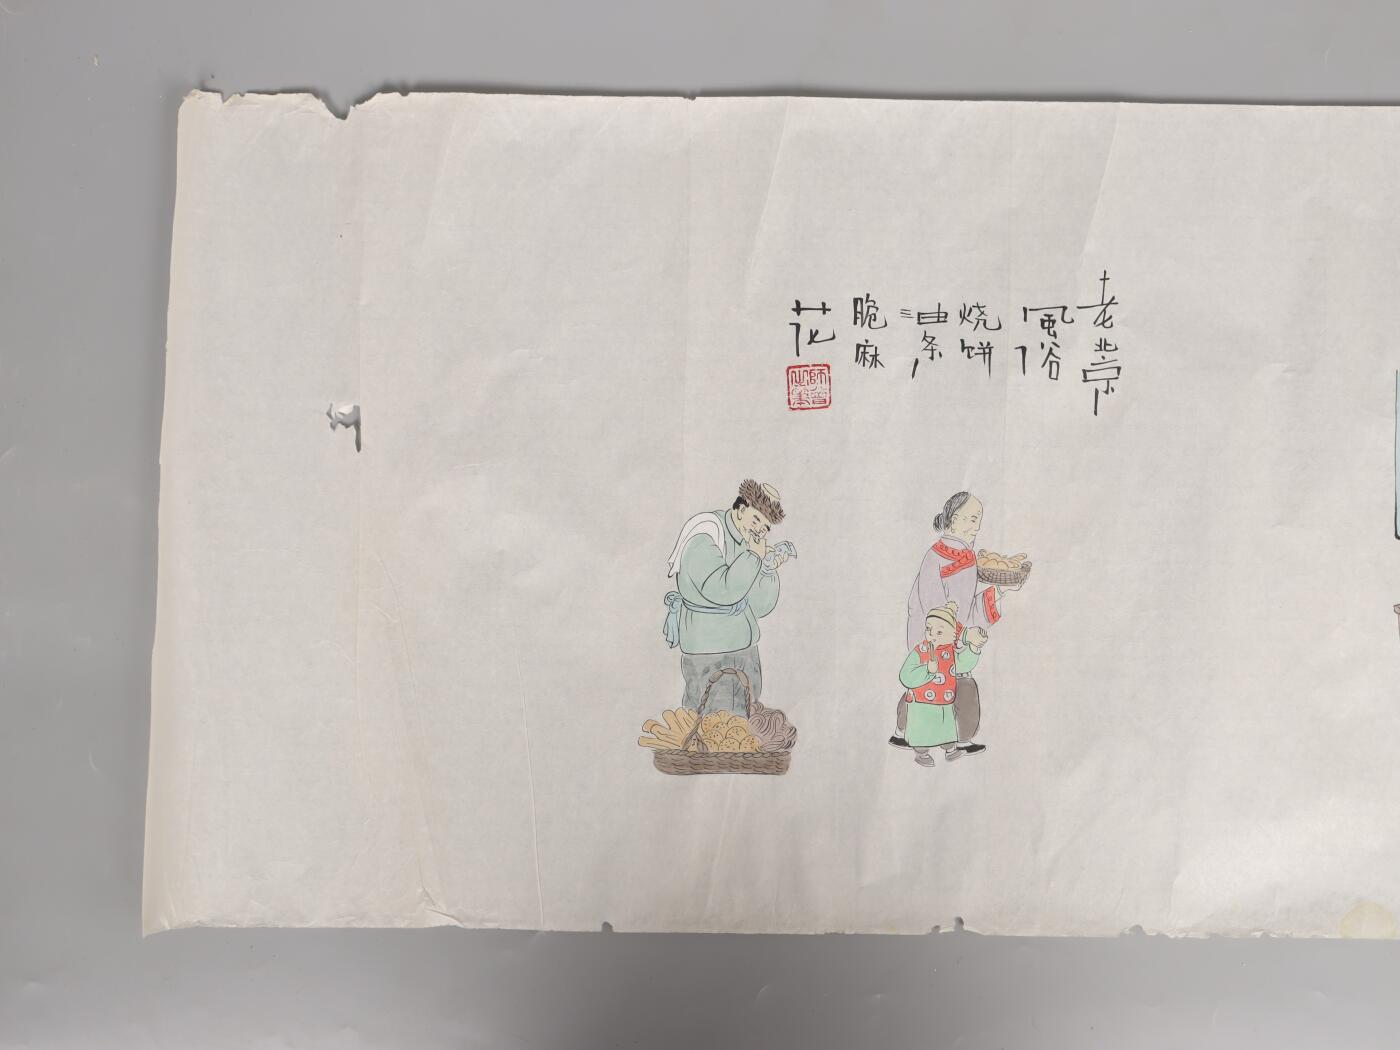 老北京
風俗
烧饼
油条
脆麻
花